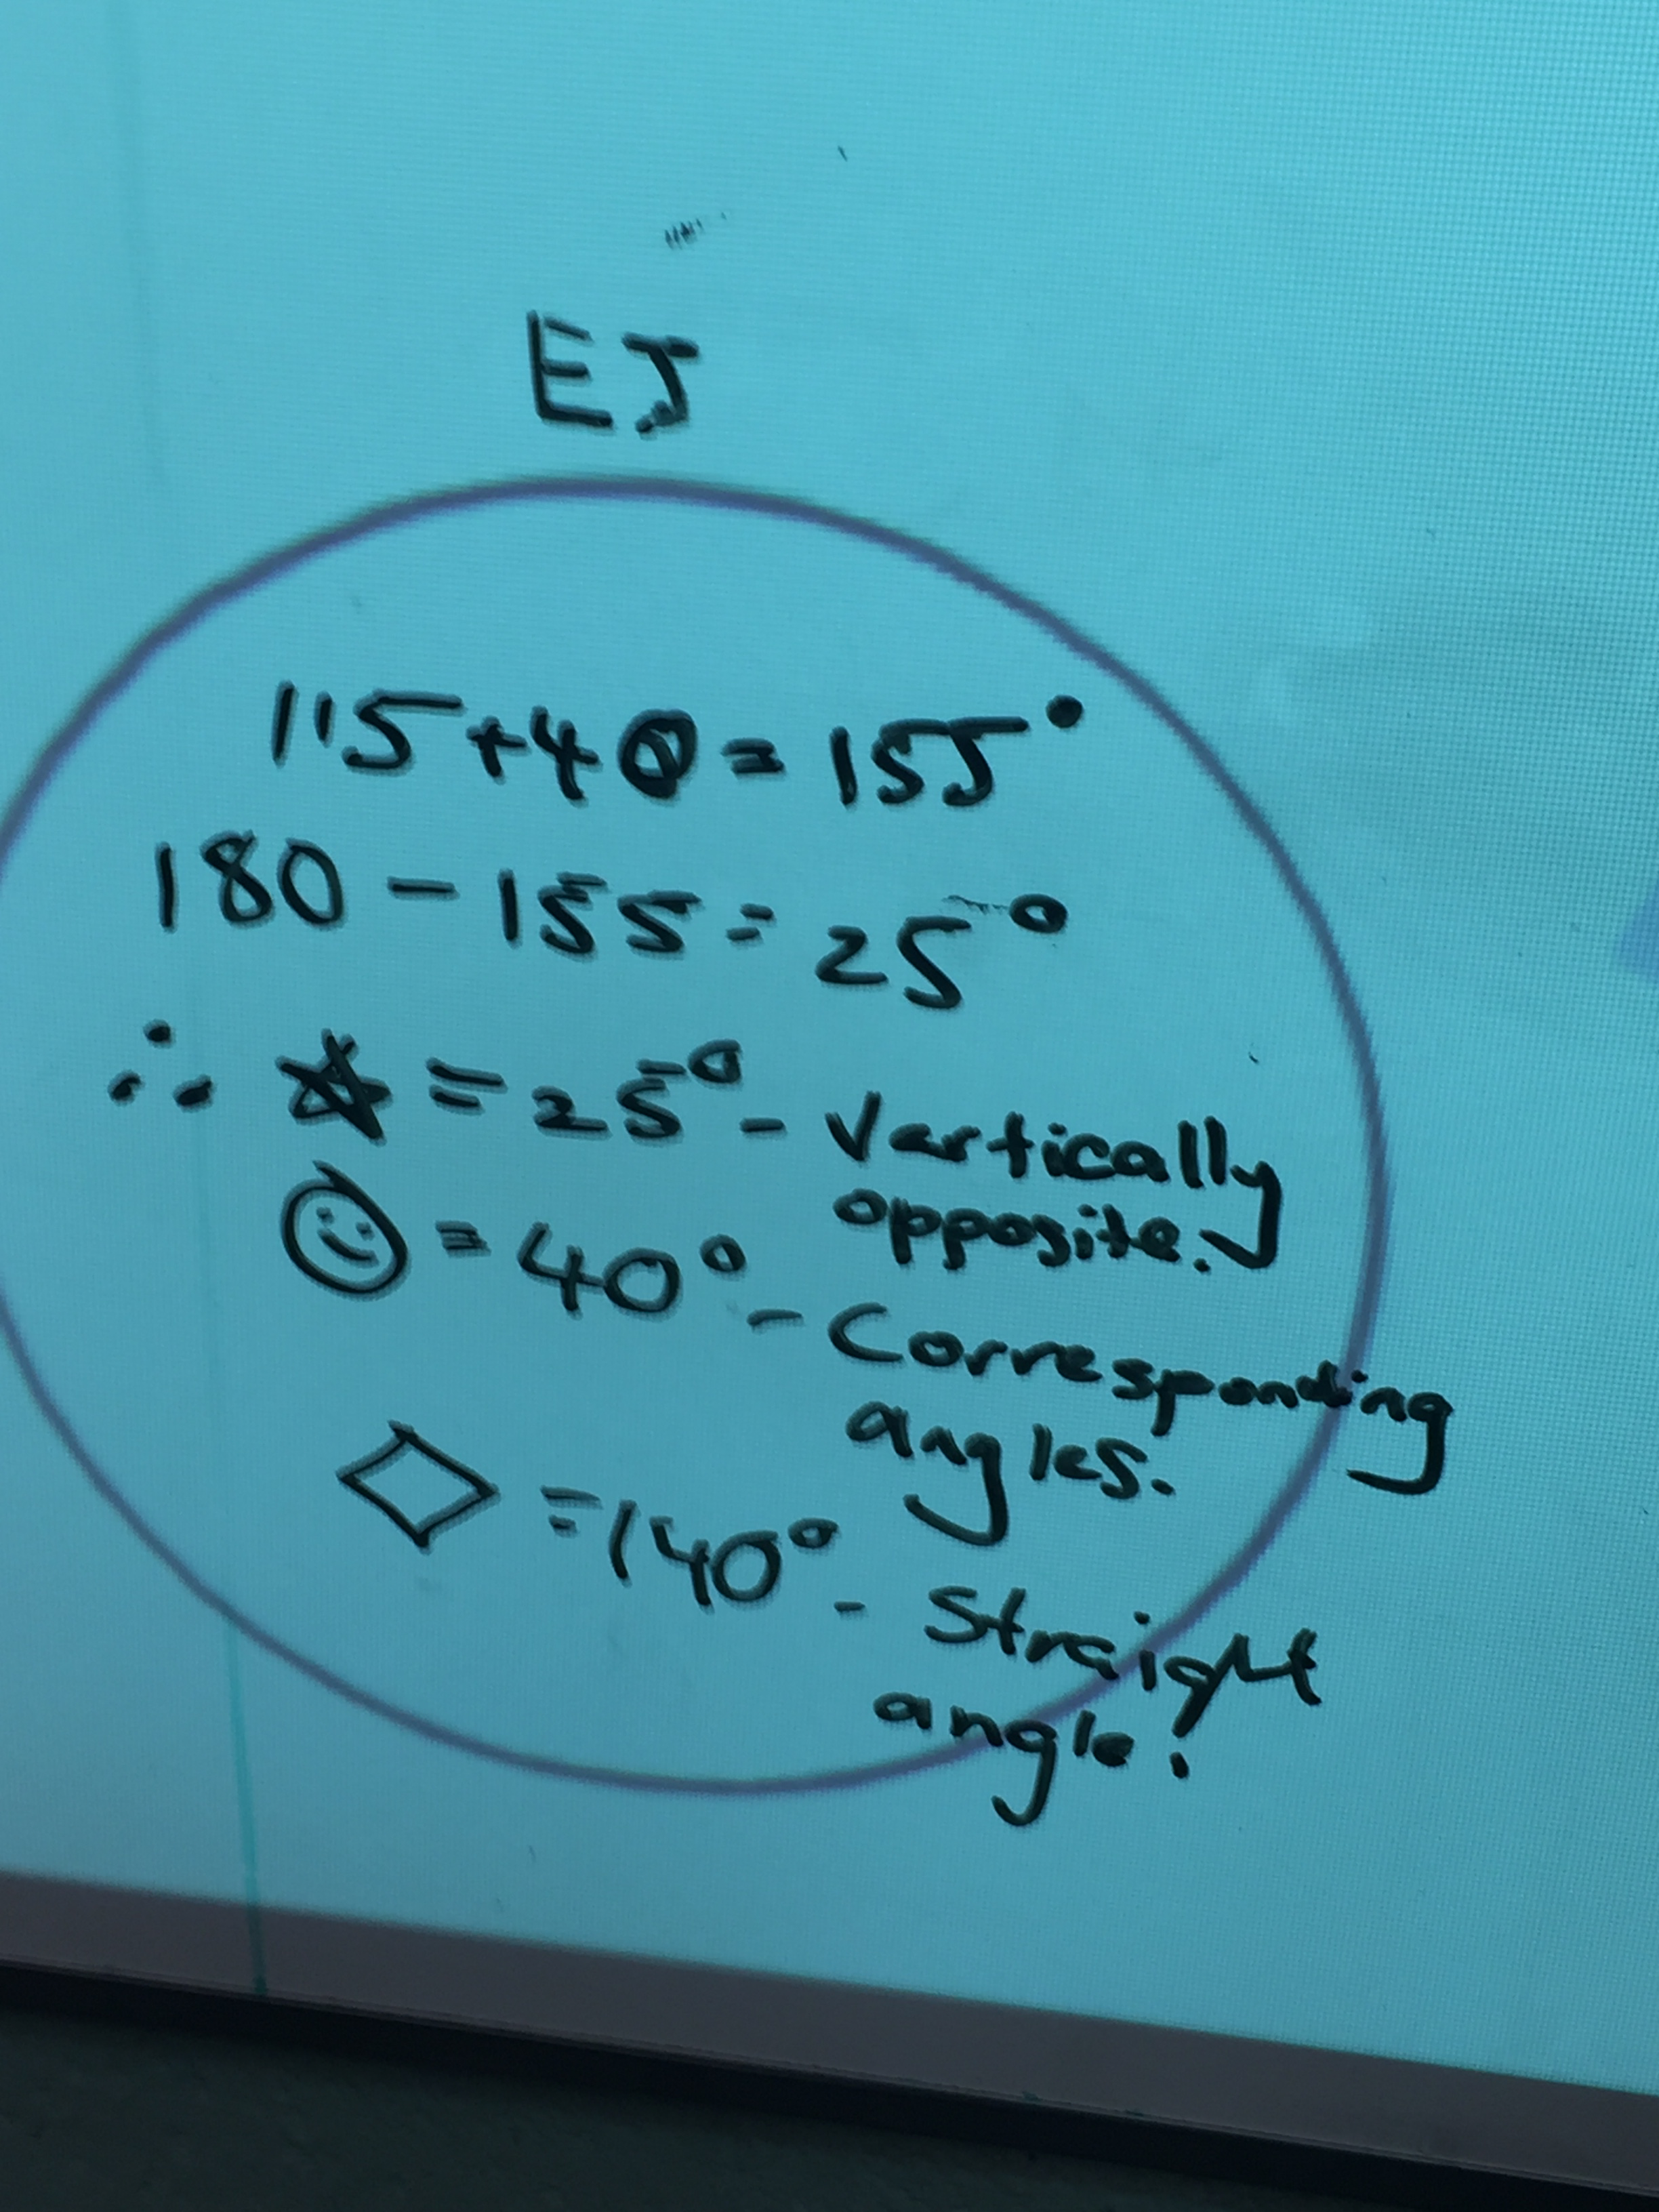 EJ
115+40=155°
180-155=25°
∴ ☆=25°- Vertically
opposite.
☺=40°- Corresponding
angles.
◇=140°- Straight
angle.